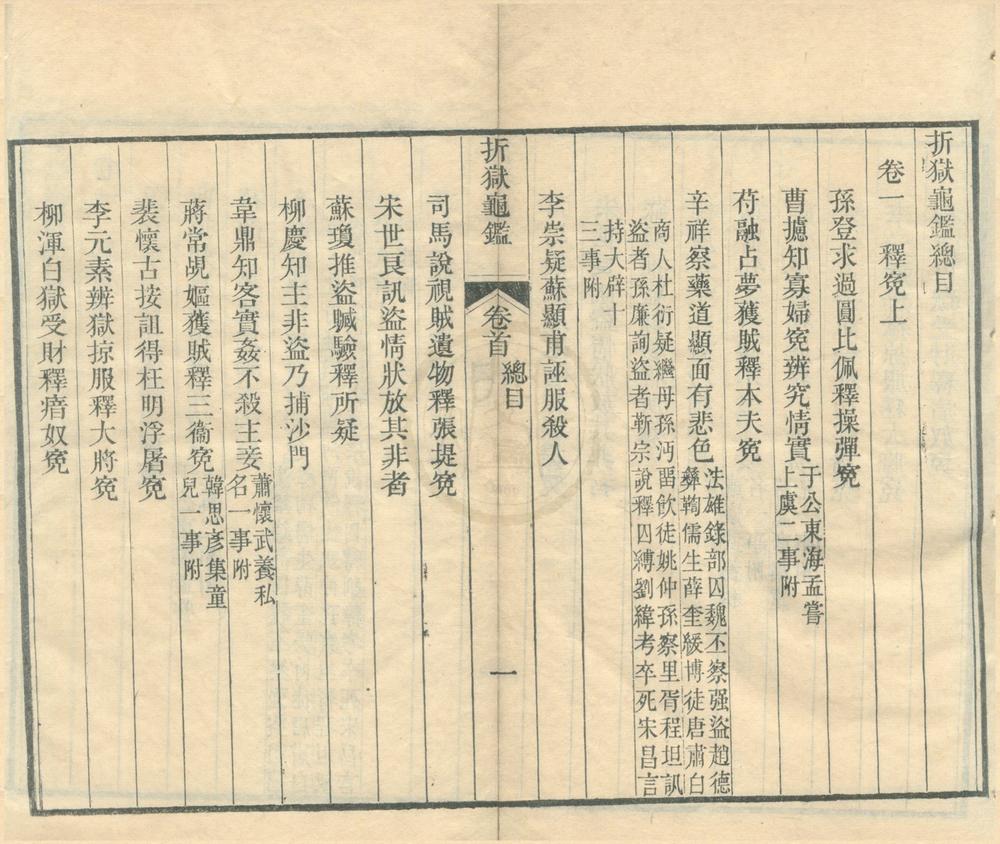 折獄龜鑑總目
卷一　釋寃上
孫登求過圓比佩釋操彈寃
曹攄知寡婦寃辨究情實
于公東海孟嘗
上虞二事附
苻融占夢獲賊釋本夫寃
辛祥察藥道顯面有悲色
法雄錄部囚魏丕察强盜趙德
彝鞫儒生薛奎緩博徒唐肅白
商人杜衍疑繼母孫沔畱飮徒姚仲孫察里胥程坦訊
盜者孫廉詢盜者靳宗說釋囚縛劉緯考卒死宋昌言
持大辟十
三事附
李崇疑蘇顯甫誣服殺人
折獄龜鑑
卷首
總目
一
司馬說視賊遺物釋張堤寃
宋世良訊盜情狀放其非者
蘇瓊推盜贓驗釋所疑
柳慶知主非盜乃捕沙門
韋鼎知客實姦不殺主妾
蕭懷武養私
名一事附
蔣常覘嫗獲賊釋三衞寃
韓思彥集童
兒一事附
裴懷古按詛得枉明浮屠寃
李元素辨獄掠服釋大將寃
柳渾白獄受財釋瘖奴寃